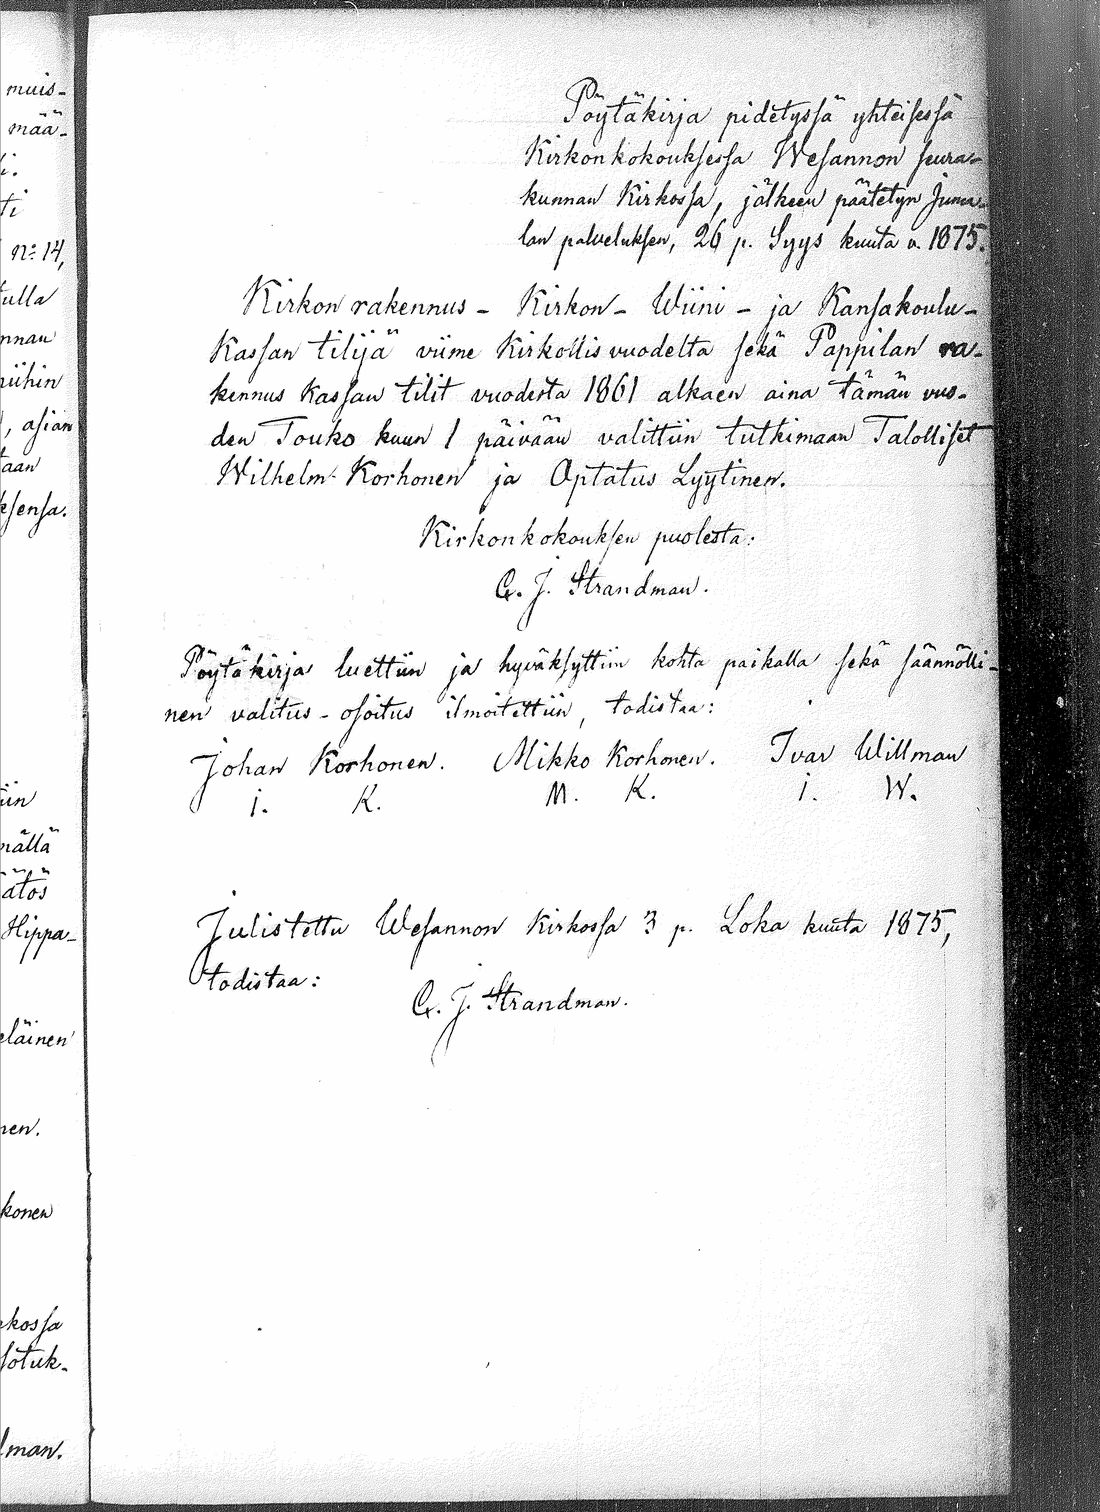 muis-
mää-
i.
ti
No 14,
tulla
nnan
niihin
, asian
taan
ksensa.
iin
nällä
ätös
Hippa-
eläinen
nen.
konen
kossa
sotuk-
lman.
Pöytäkirja pidetyssä yhteisessä
Kirkonkokouksessa Wesannon seura-
kunnan Kirkossa, jälkeen päätetyn Juma-
lan palveluksen, 26 p. Syys kuuta v. 1875.
Kirkon rakennus - Kirkon - Wiini - ja Kansakoulu-
Kassan tilijä viime Kirkollis vuodelta sekä Pappilan ra-
kennus Kassan tilit vuodesta 1861 alkaen aina tämän vuo-
den Touko kuun 1 päivään valittiin tutkimaan Talolliset
Wilhelm Korhonen ja Optatus Lyytinen.
Kirkonkokouksen puolesta:
G. J. Strandman.
Pöytäkirja luettiin ja hyväksyttiin kohta paikalla sekä säännölli-
nen valitus-osoitus ilmoitettiin, todistaa:
Johan Korhonen. Mikko Korhonen. Ivar Willman
J. K. M. K. I. W.
Julistettu Wesannon Kirkossa 3 p. Loka kuuta 1875,
todistaa:
G. J. Strandman.